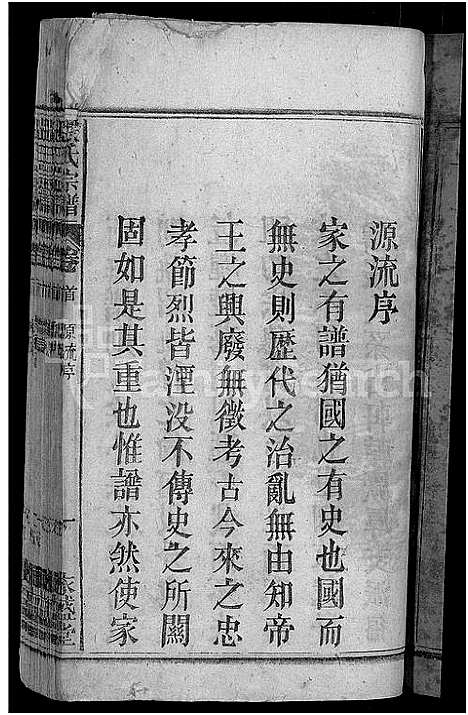 源流序
家之有譜猶國之有史也國而
無史則歷代之治亂無由知帝
王之興廢無徵考古今來之忠
孝節烈皆湮没不傳史之所關
固如是其重也惟譜亦然使家
氏宗譜
卷首 源流序
一